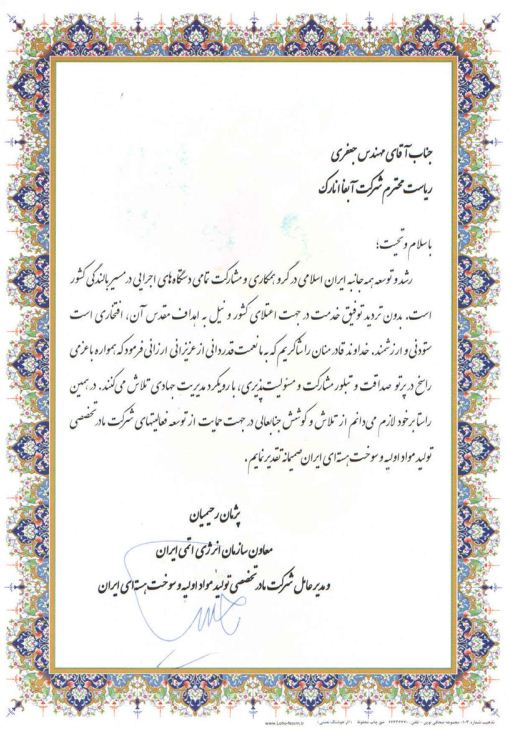 جناب آقای مهندس جعفری
ریاست محترم شرکت آبفا انارک
با سلام و تحیت؛
رشد و توسعه همه جانبه ایران اسلامی در گرو همکاری و مشارکت تمامی دستگاه‌های اجرایی در مسیر بالندگی کشور
است. بدون تردید توفیق خدمت در جهت اعتلای کشور و نیل به اهداف مقدس آن، افتخاری است
ستودنی و ارزشمند. خداوند قادر منان را شاکریم که به ما نعمت قدردانی از عزیزانی ارزانی فرمود که همواره با عزمی
راسخ در پرتو صداقت و تبلور مشارکت و مسئولیت‌پذیری، با رویکرد مدیریت جهادی تلاش می‌کنند. در همین
راستا بر خود لازم می‌دانم از تلاش و کوشش جنابعالی در جهت حمایت از توسعه فعالیتهای شرکت مادر تخصصی
تولید مواد اولیه و سوخت هسته‌ای ایران صمیمانه تقدیر نمایم.
پژمان رحیمیان
معاون سازمان انرژی اتمی ایران
و مدیرعامل شرکت مادر تخصصی تولید مواد اولیه و سوخت هسته‌ای ایران